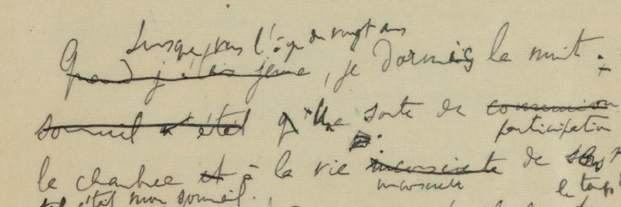 Jusque vers l'âge de vingt ans
Quand j'étais jeune, je dormais la nuit.
sommeil n'était qu'une sorte de communion
participation
la chambre et à la vie inconsciente de
inconsciente le temps
était mon sommeil.